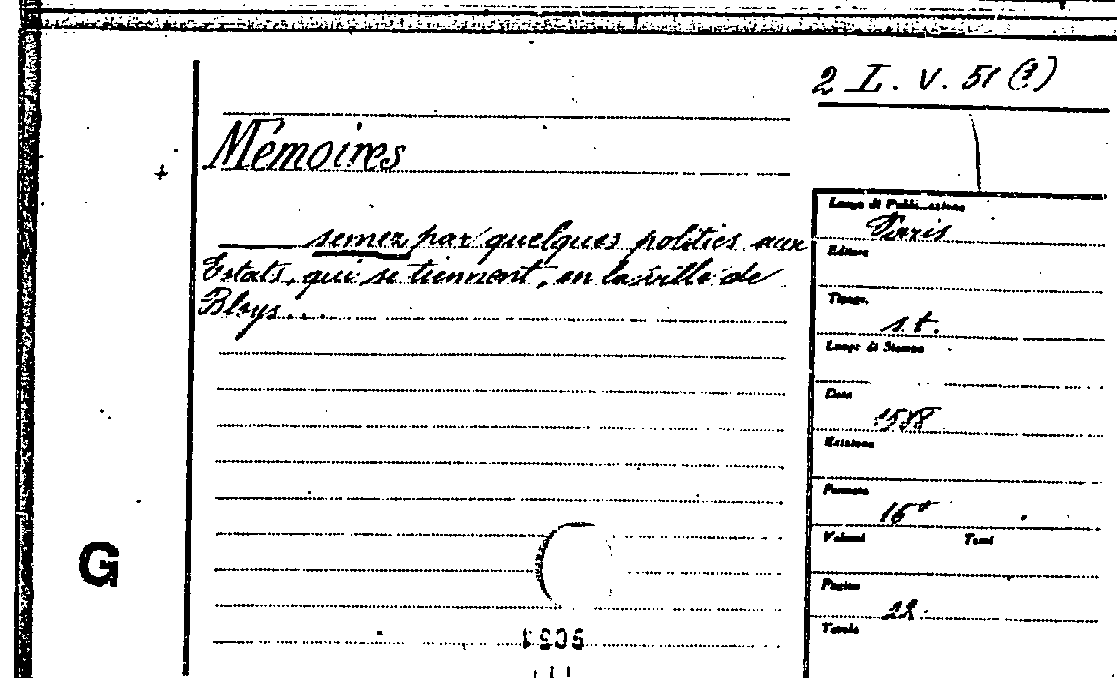 2 I. V. 51 (3)
Mémoires
semez par quelques politics aux
Estats, qui se tiennent, en la ville de
Bloys...
Luogo di Pubblicazione
Paris
Editore
Tipogr.
s. t.
Luogo di Stampa
Data
1588
Edizione
Formato
16°
Volumi Tomi
Pagine
22.
Tavole
G